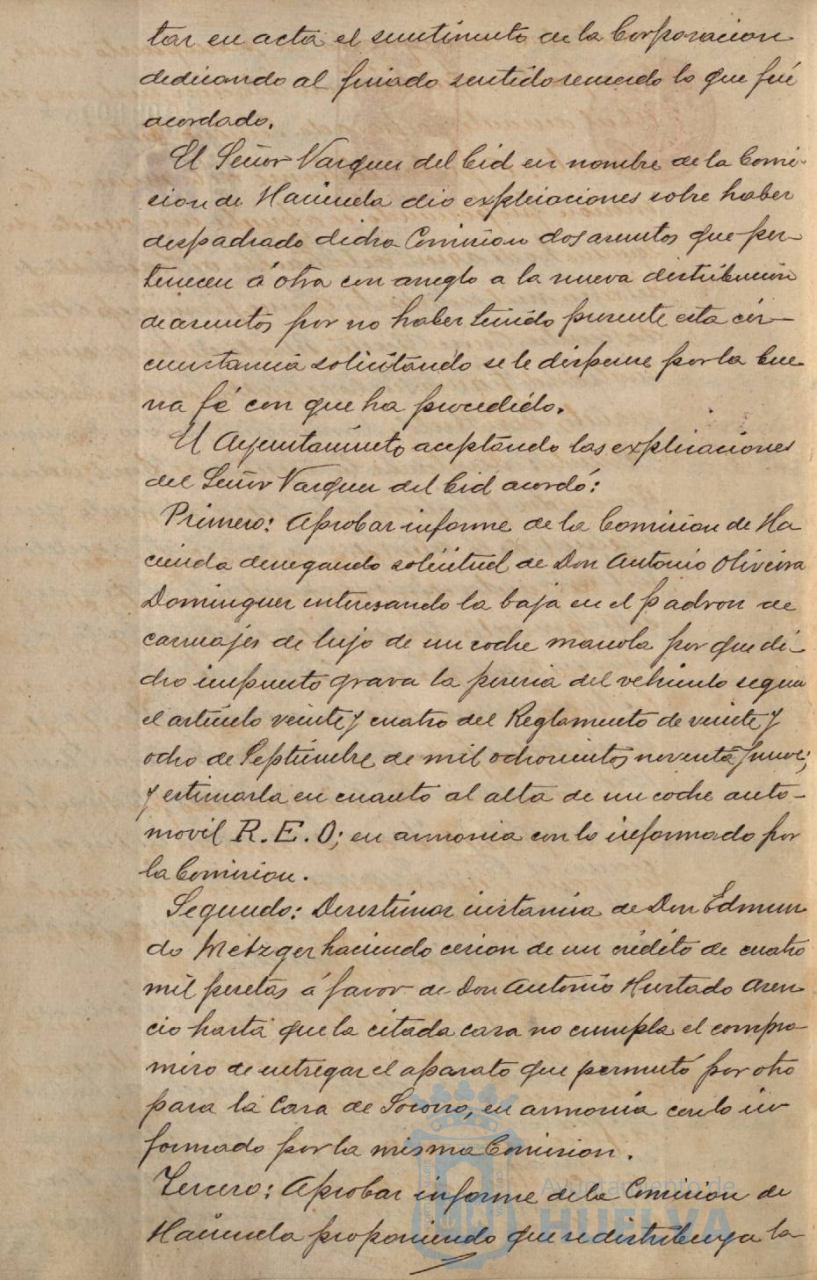 tar en acta el sentimiento de la Corporacion
dedicando al finado sentido recuerdo lo que fué
acordado.
El Señor Vazquez del Cid en nombre de la Comi-
sion de Hacienda dio explicaciones sobre haber
despachado dicha Comision dos asuntos que per-
tenecen á otra con arreglo a la nueva distribucion
de asuntos por no haber tenido presente esta cir-
cunstancia solicitando se le dispense por la bue
na fé con que ha procedido.
El Ayuntamiento aceptando las explicaciones
del Señor Vazquez del Cid acordó:
Primero: Aprobar informe de la Comision de Ha
cienda denegando solicitud de Don Antonio Oliveira
Dominguez interesando la baja en el padron de
carruajes de lujo de un coche manola por que di-
cho impuesto grava la posesia del vehiculo segun
el articulo veinte y cuatro del Reglamento de veinte y
ocho de Septiembre de mil ochocientos noventa y nueve;
y estimarla en cuanto al alta de un coche auto-
movil R.E.O; en armonia con lo informado por
la Comision.
Segundo: Desestimar instancia de Don Edmun
do Metzger haciendo cesion de un crédito de cuatro
mil pesetas á favor de Don Antonio Hurtado Asen
cio hasta que la citada casa no cumpla el compro
miso de entregar el aparato que permutó por otro
para la Casa de Socorro, en armonia con lo in
formado por la misma Comision.
Tercero: Aprobar informe de la Comision de
Hacienda proponiendo que se distribuya la
Ayuntamiento de
HUELVA